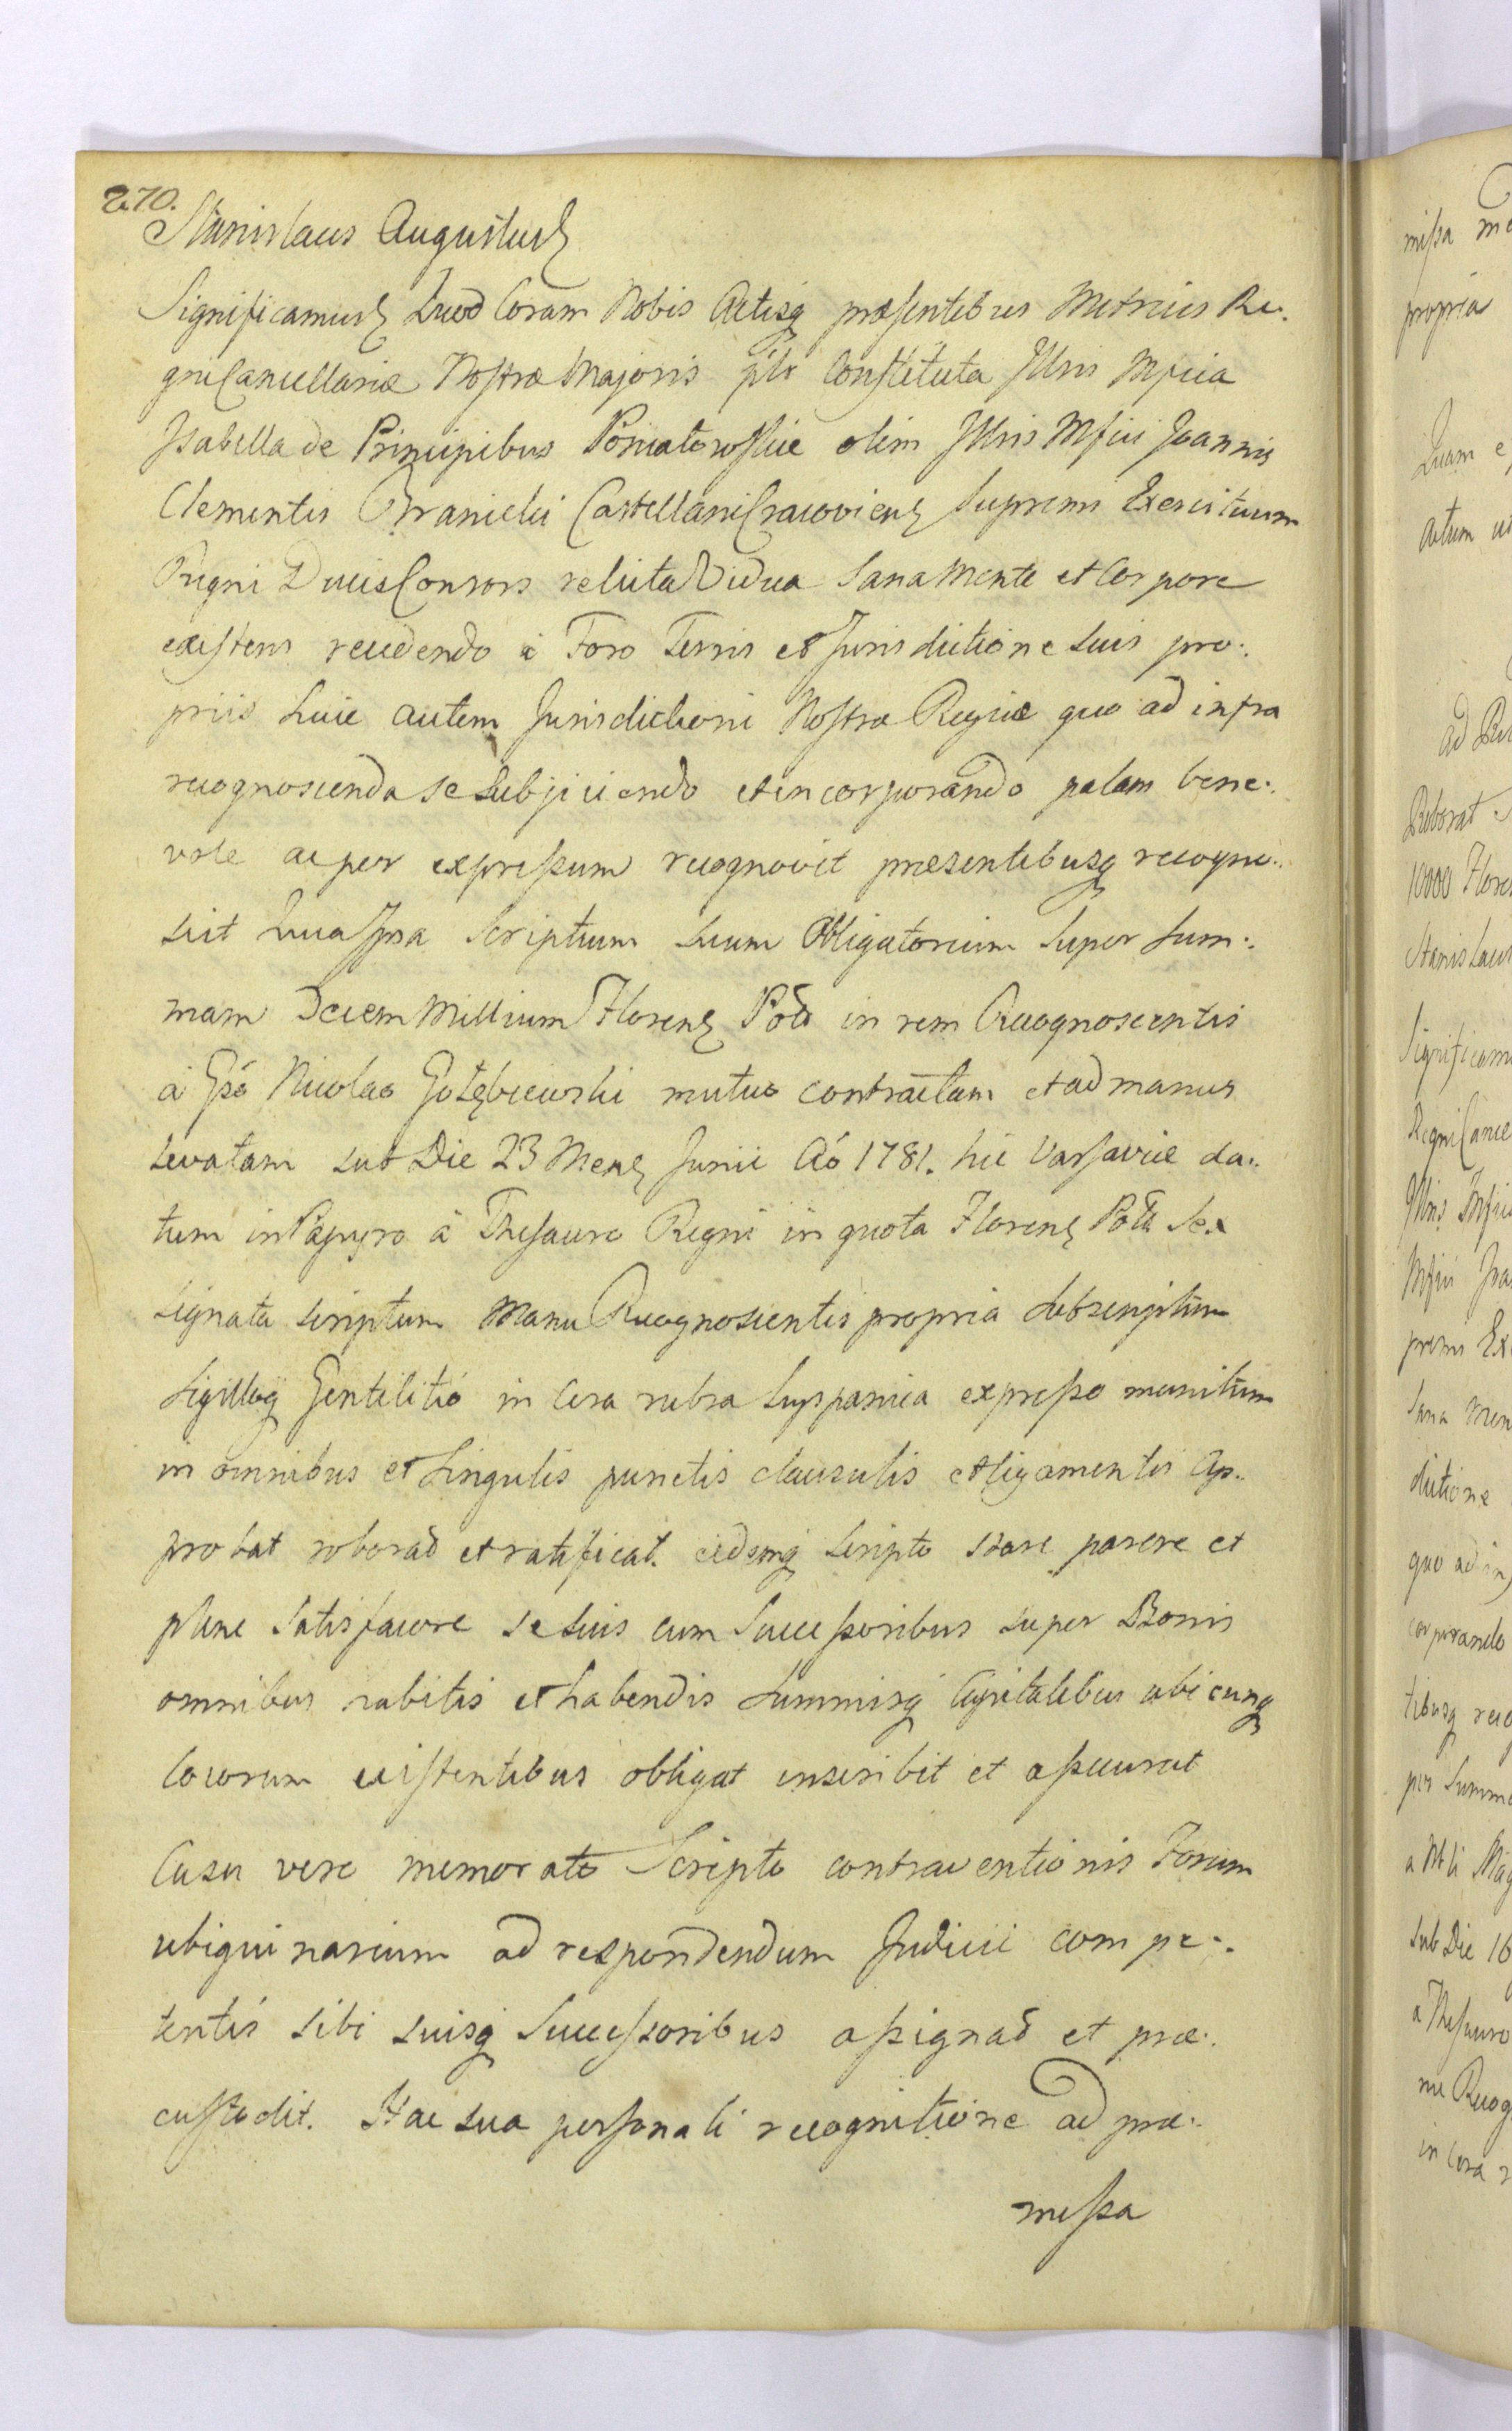 270.
Stanislaus Augustus
Significamus Quod Coram Nobis Actisq præsentibus Metrices Re.
gni Cancellariæ Nostræ Majoris plr Constituta Illris Mfica
Isabella de Principibus Poniatowskie olim Illris Mfici Joannis
Clementis Branicki Castellani Cracoviens Supremi Exercituum
Regni Ducis Consors relicta Vidua Sana Mente et Corpore
existens recedendo à Foro Terris et Jurisdictione suis pro.
priis huic autem Jurisdictioni Nostræ Regiæ quo ad infra
recognoscenda se Subjiciendo et incorporando palam bene.
vole ac per expressum recognovit præsentibusq recogno.
scit Quia Ipsa Scriptum suum Obligatorium Super Sum.
mam Decem Millium Florens Pols in rem Recognoscentis
à Gso Nicolao Gołębiewski mutuo contractam et ad manus
levatam sub Die 23 Mens Junii Aó 1781. hic Varsavie da.
tum in Papyro à Thesauro Regni in quota Florens Pols Sex
signata scriptum Manu Recognoscentis propria subscriptum
Sigilloq Gentilitió in Cera rubra hyspanica expresso munitum
in omnibus et Singulis punctis clausulis et ligamentis Ap.
probat roborad et ratificat. eidemq Scripto stare parere et
plene Satisfacere se suis cum Successoribus super Bonis
omnibus habitis et habendis Summisq Capitalibus ubicunq
locorum existentibus obligat inscribit et assecurat
Casu vero memorato Scripto contraventionis Forum
ubiquinarium ad respondendum Judicii compe.
tentis sibi suisq Successoribus assignad et præ.
custodit. Hac sua personali recognitione ad præ.
missa